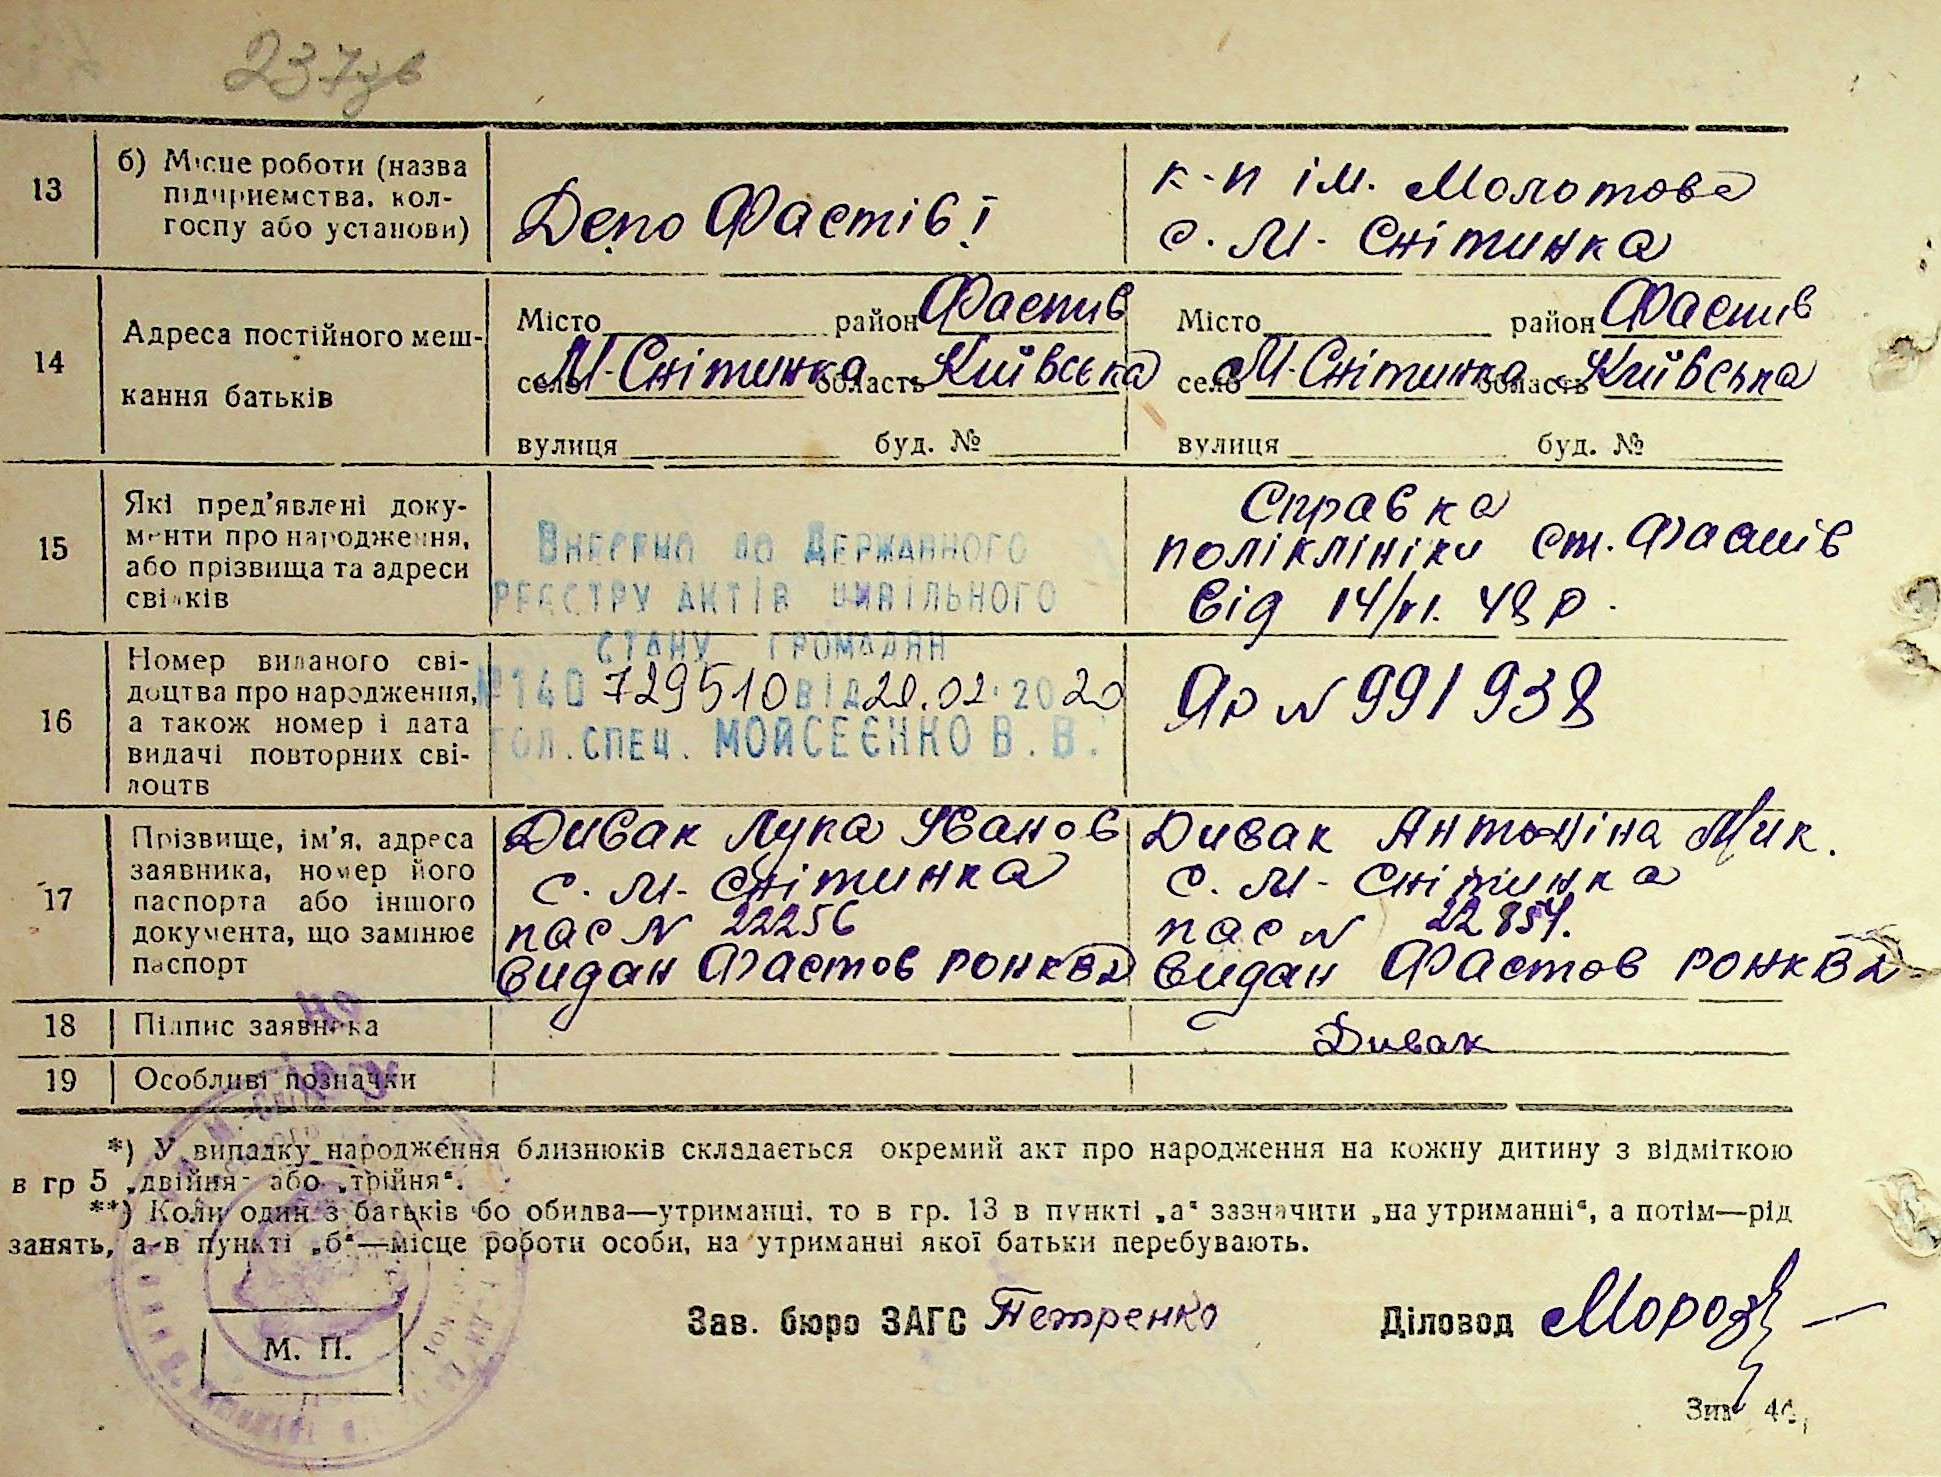 237зв
13
б) Місце роботи (назва
підприємства, кол-
госпу або установи)
Депо Фастів І
к-п ім. Молотова
с. М-Снітинка
14
Адреса постійного меш-
кання батьків
Місто район Фастів
село М-Снітинка область Київська
вулиця буд. №
Місто район Фастів
село М-Снітинка область Київська
вулиця буд. №
15
Які пред'явлені доку-
менти про народження,
або прізвища та адреси
свідків
Справка
поліклініки ст. Фастів
від 14/VI. 48 р.
Внесено до Державного
реєстру актів цивільного
стану громадян
№140 729510 від 20.02.2020
гол. спец. Мойсеєнко В. В.
16
Номер виданого сві-
доцтва про народження,
а також номер і дата
видачі повторних сві-
доцтв
Яр N 991938
17
Прізвище, ім'я, адреса
заявника, номер його
паспорта або іншого
документа, що замінює
паспорт
Дивак Лука Іванов
с. М-Снітинка
пас N 22256
видан Фастов РОНКВД
Дивак Антоніна Мик.
с. М-Снітинка
пас N 22854.
видан Фастов РОНКВД
18
Підпис заявника
Дивак
19
Особливі позначки
*) У випадку народження близнюків складається окремий акт про народження на кожну дитину з відміткою
в гр 5 „двійня" або „трійня".
**) Коли один з батьків бо обидва—утриманці, то в гр. 13 в пункті „а" зазначити „на утриманні", а потім—рід
занять, а в пункті „б"—місце роботи особи, на утриманні якої батьки перебувають.
Зав. бюро ЗАГС Петренко
Діловод Мороз
М. П.